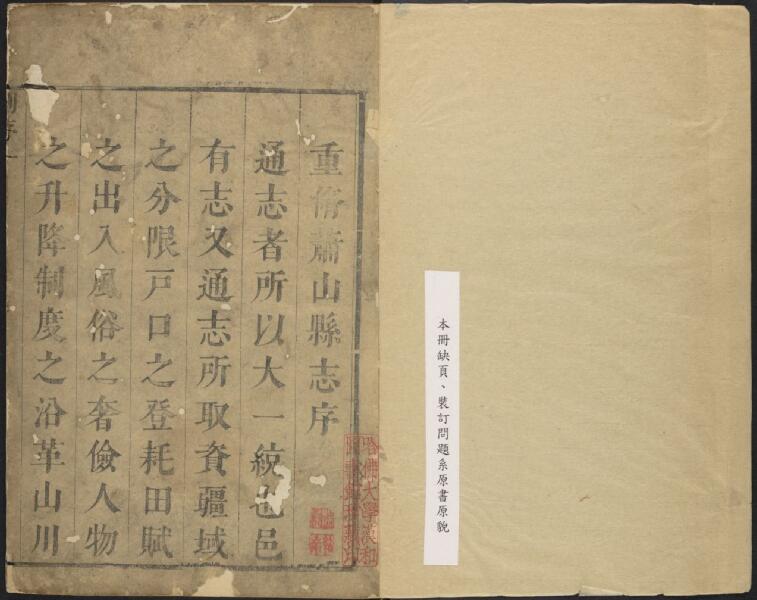 本冊缺頁、裝訂問題系原書原貌
重脩蕭山縣志序
通志者所以大一統也邑
有志又通志所取資疆域
之分限戸口之登耗田賦
之出入風俗之奢儉人物
之升降制度之沿革山川
哈佛大學漢和圖書館珍藏印